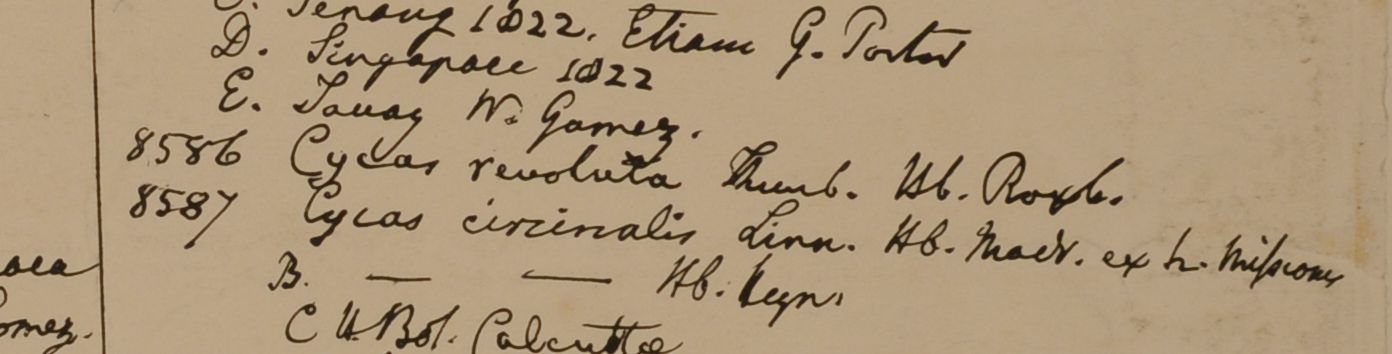 C. Penang 1822. Etiam G. Porter
D. Singapore 1822
E. Tavoy W. Gomez.
8586 Cycas revoluta Thunb. Hb. Roxb.
8587 Cycas circinalis Linn. Hb. Madr. ex h. Miſsionis
B. — — Hb. Heyn.
C H. Bot. Calcutta
omez.